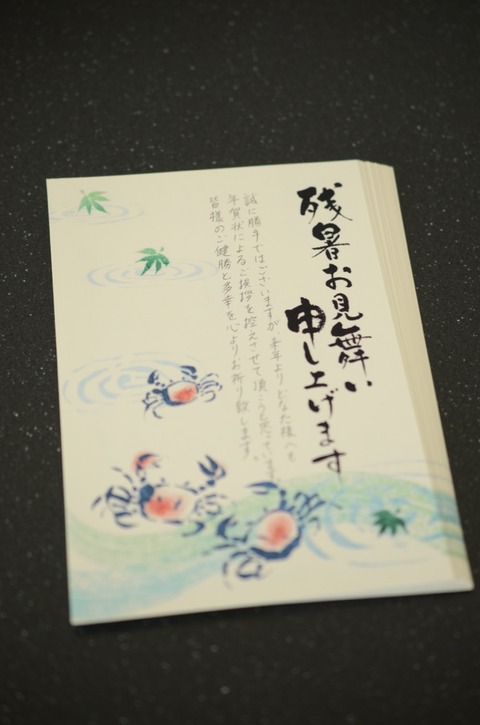 残暑お見舞い
申し上げます
誠に勝手ではございますが来年よりどなた様へも
年賀状によるご挨拶を控えさせて頂こうと思っています
皆様のご健勝と多幸を心よりお祈り致します。